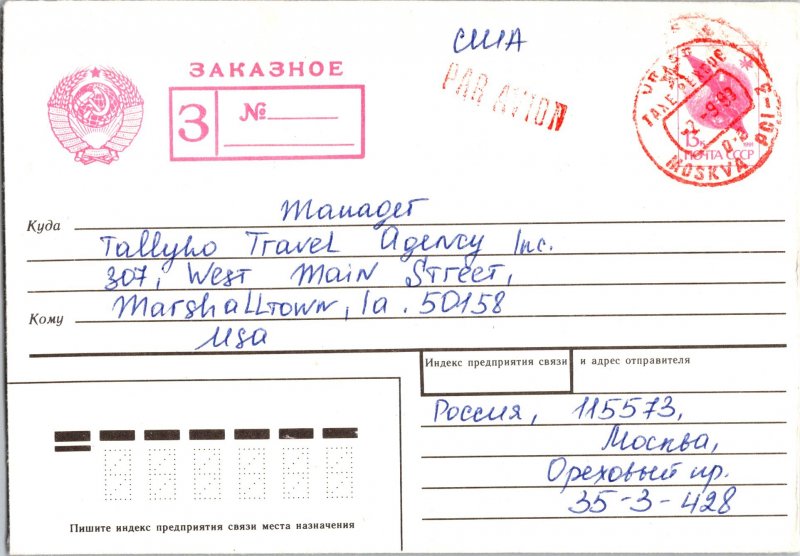 США
ЗАКАЗНОЕ
PAR AVION
З №
13к
ПОЧТА СССР
MOSKVA PCI-2
2-9.93
Куда
Manager
Tallyho Travel Agency Inc.
307, West Main Street,
Marshalltown, Ia. 50158
Кому
USA
Индекс предприятия связи и адрес отправителя
Россия, 115573,
Москва,
Ореховый пр.
35-3-428
Пишите индекс предприятия связи места назначения